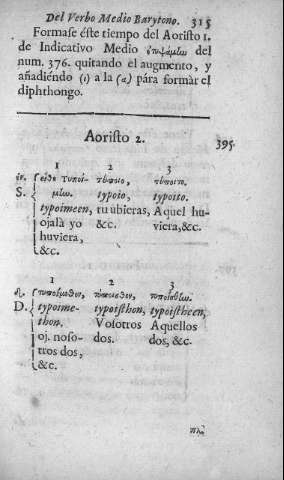 Del Verbo Medio Barytono. 315
Formase éste tiempo del Aoristo 1.
de Indicativo Medio ἐτυψάμlω del
num. 376. quitando el augmento, y
añadiéndo (ι) a la (α) pára formàr el
diphthongo.
Aoristo 2.
395.
1 2 3
S. εἴθε τυποί- τύποιο, τύποιτο.
μlω. typoio, typoito.
typoimeen, tu ubieras, Aquel hu-
ojalà yo &c. viera,&c.
huviera,
&c.
1 2 3
τυποίμεθον, τύποισθον, τυποίσθlω.
D. typoime- typoisthon, typoistheen,
thon. Vosotros Aquellos
oj. noso- dos. dos, &c.
tros dos,
&c.